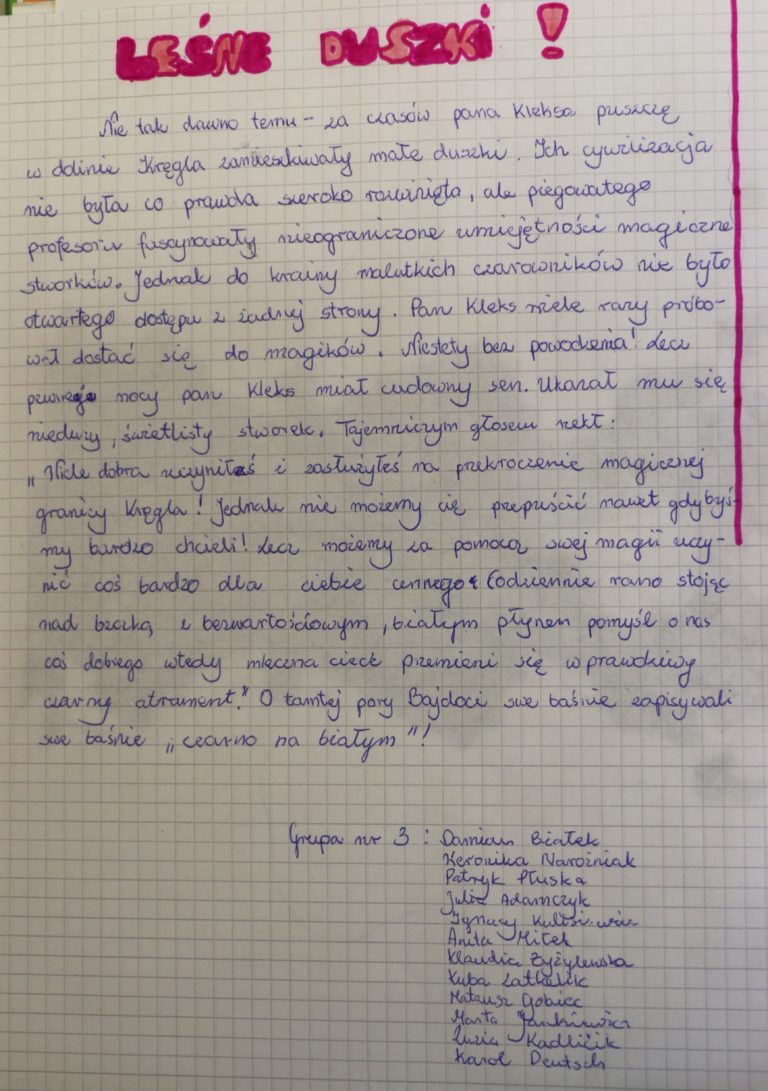 LEŚNE DUSZKI!
Nie tak dawno temu - za czasów pana Kleksa puszczę
w ddinie Kręgla zamieszkiwały małe duszki. Ich cywilizacja
nie była co prawda szeroko rozwinięta, ale piegowatego
profesora fascynowały nieograniczone umiejętności magiczne
stworków. Jednak do krainy malutkich czarowników nie było
otwartego dostępu z żadnej strony. Pan Kleks wiele razy próbo-
wał dostać się do magików. Niestety bez powodzenia! Lecz
pewnego nocy pan Kleks miał cudowny sen. Ukazał mu się
nieduży, świetlisty stworek. Tajemniczym głosem rzekł:
"Wiele dobra uczyniłeś i zasłużyłeś na przekroczenie magicznej
granicy Kręgla! Jednak nie możemy cię przepuścić nawet gdybyś-
my bardzo chcieli! Lecz możemy za pomocą swej magii uczy-
nić coś bardzo dla ciebie cennego. Codziennie rano stojąc
nad beczką z bezwartościowym, białym płynem pomyśl o nas
coś dobrego wtedy mleczna ciecz przemieni się w prawdziwy
czarny atrament." O tamtej pory Bajdoci swe baśnie zapisywali
swe baśnie "czarno na białym"!
Grupa nr 3: Damian Białek
Weronika Narożniak
Patryk Płuska
Julia Adamczyk
Ignacy
Anita Mitek
Klaudia Zyżylewska
Kuba
Mateusz Gobiec
Marta Jankiewicz
Zuzia Kadlićik
Karol Deutsch